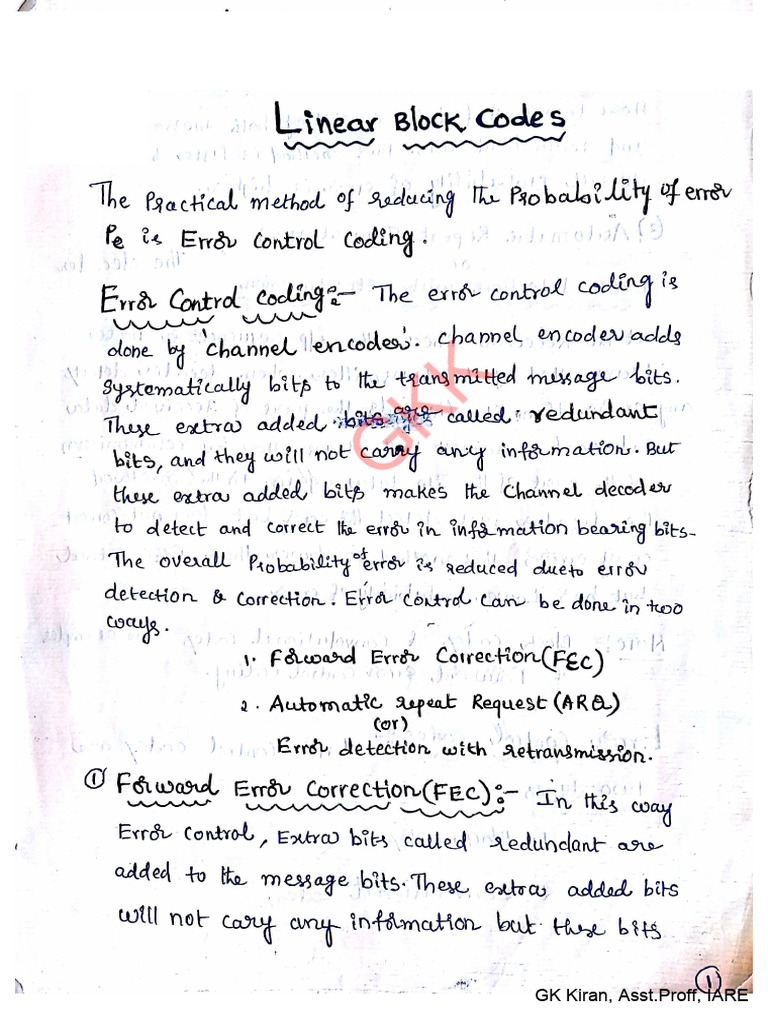 Linear Block Codes
The Practical method of reducing the Probability of error
Pe is Error Control Coding.
Error Control Coding:- The error control coding is
done by 'channel encoder'. Channel encoder adds
systematically bits to the transmitted message bits.
These extra added bits are called redundant
bits, and they will not carry any information. But
these extra added bits makes the Channel decoder
to detect and correct the error in information bearing bits.
The overall Probability of error is reduced due to error
detection & correction. Error control can be done in two
ways.
1. Forward Error Correction (FEC)
2. Automatic repeat Request (ARQ)
(or)
Error detection with retransmission.
① Forward Error Correction (FEC):- In this way
Error Control, Extra bits called redundant are
added to the message bits. These extra added bits
will not cary any information but these bits
GKK
1
GK Kiran, Asst.Proff, IARE